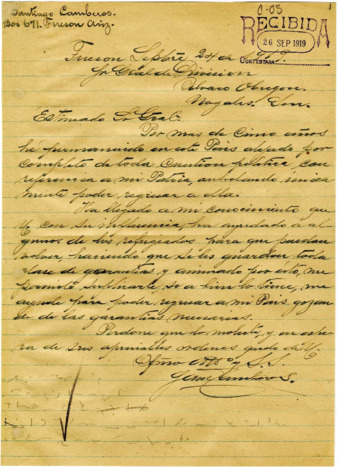 Santiago Camberos.
Box 671. Tucson Ariz.
C-03
RECIBIDA
26 SEP 1919
CONTESTADA
Tucson Sebtre 24 de 1919.
Sr Gral de Division
Alvaro Obregon.
Nogales, Son.
Estimado Sr Gral:
Por mas de Cinco años
he permanecido en este Pais alejado por
completo de toda Cuestion politica con
referensia a mi Patria, anhelando única
mente poder, regresar a ella.
Ha llegado a mi conocimiento que
Ud con su influencia, ha ayudado a al
gunos de los refugiados para que puedan
volver, haciendo que se les guarden toda
clase de garantias y animado por esto, me
permito suplicarle, si a bien lo tiene, me
ayude para poder, regresar a mi Pais gozan
do de las garantias nesesarias.
Perdone que lo moleste, y en espe
ra de sus apreciables ordenes quedo de Ud
Afmo Atto y S. S.